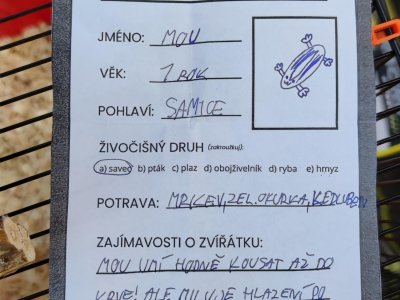 JMÉNO: MOU
VĚK: 1 ROK
POHLAVÍ: SAMICE
ŽIVOČIŠNÝ DRUH (zakroužkuj):
a) savec b) pták c) plaz d) obojživelník d) ryba e) hmyz
POTRAVA: MRKEV, ZEL. OKURKA, KEDLUBEN
ZAJÍMAVOSTI O ZVÍŘÁTKU:
MOU UMÍ HODNĚ KOUSAT AŽ DO
KRVE! ALE MILUJE HLAZENÍ